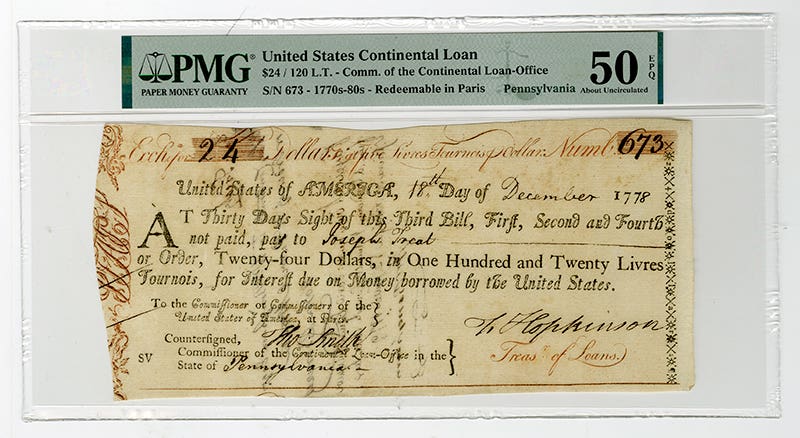 PMG
PAPER MONEY GUARANTY
United States Continental Loan
$24 / 120 L.T. - Comm. of the Continental Loan-Office
S/N 673 - 1770s-80s - Redeemable in Paris Pennsylvania
50 EPQ
About Uncirculated
Exch.ᵃ for 24 Dollars, at five Livres Tournois ⅌ Dollar. Numb. 673
United States of AMERICA, 18th Day of December 1778
AT Thirty Days Sight of this Third Bill, First, Second and Fourth
not paid, pay to Joseph Treat
or Order, Twenty-four Dollars, in One Hundred and Twenty Livres
Tournois, for Interest due on Money borrowed by the United States.
To the Commissioner or Commissioners of the
United States of America, at Paris.
Countersigned, Tho Smith
F Hopkinson
SV Commissioner of the Continental Loan-Office in the
Treasr. of Loans.
State of Pennsylvania